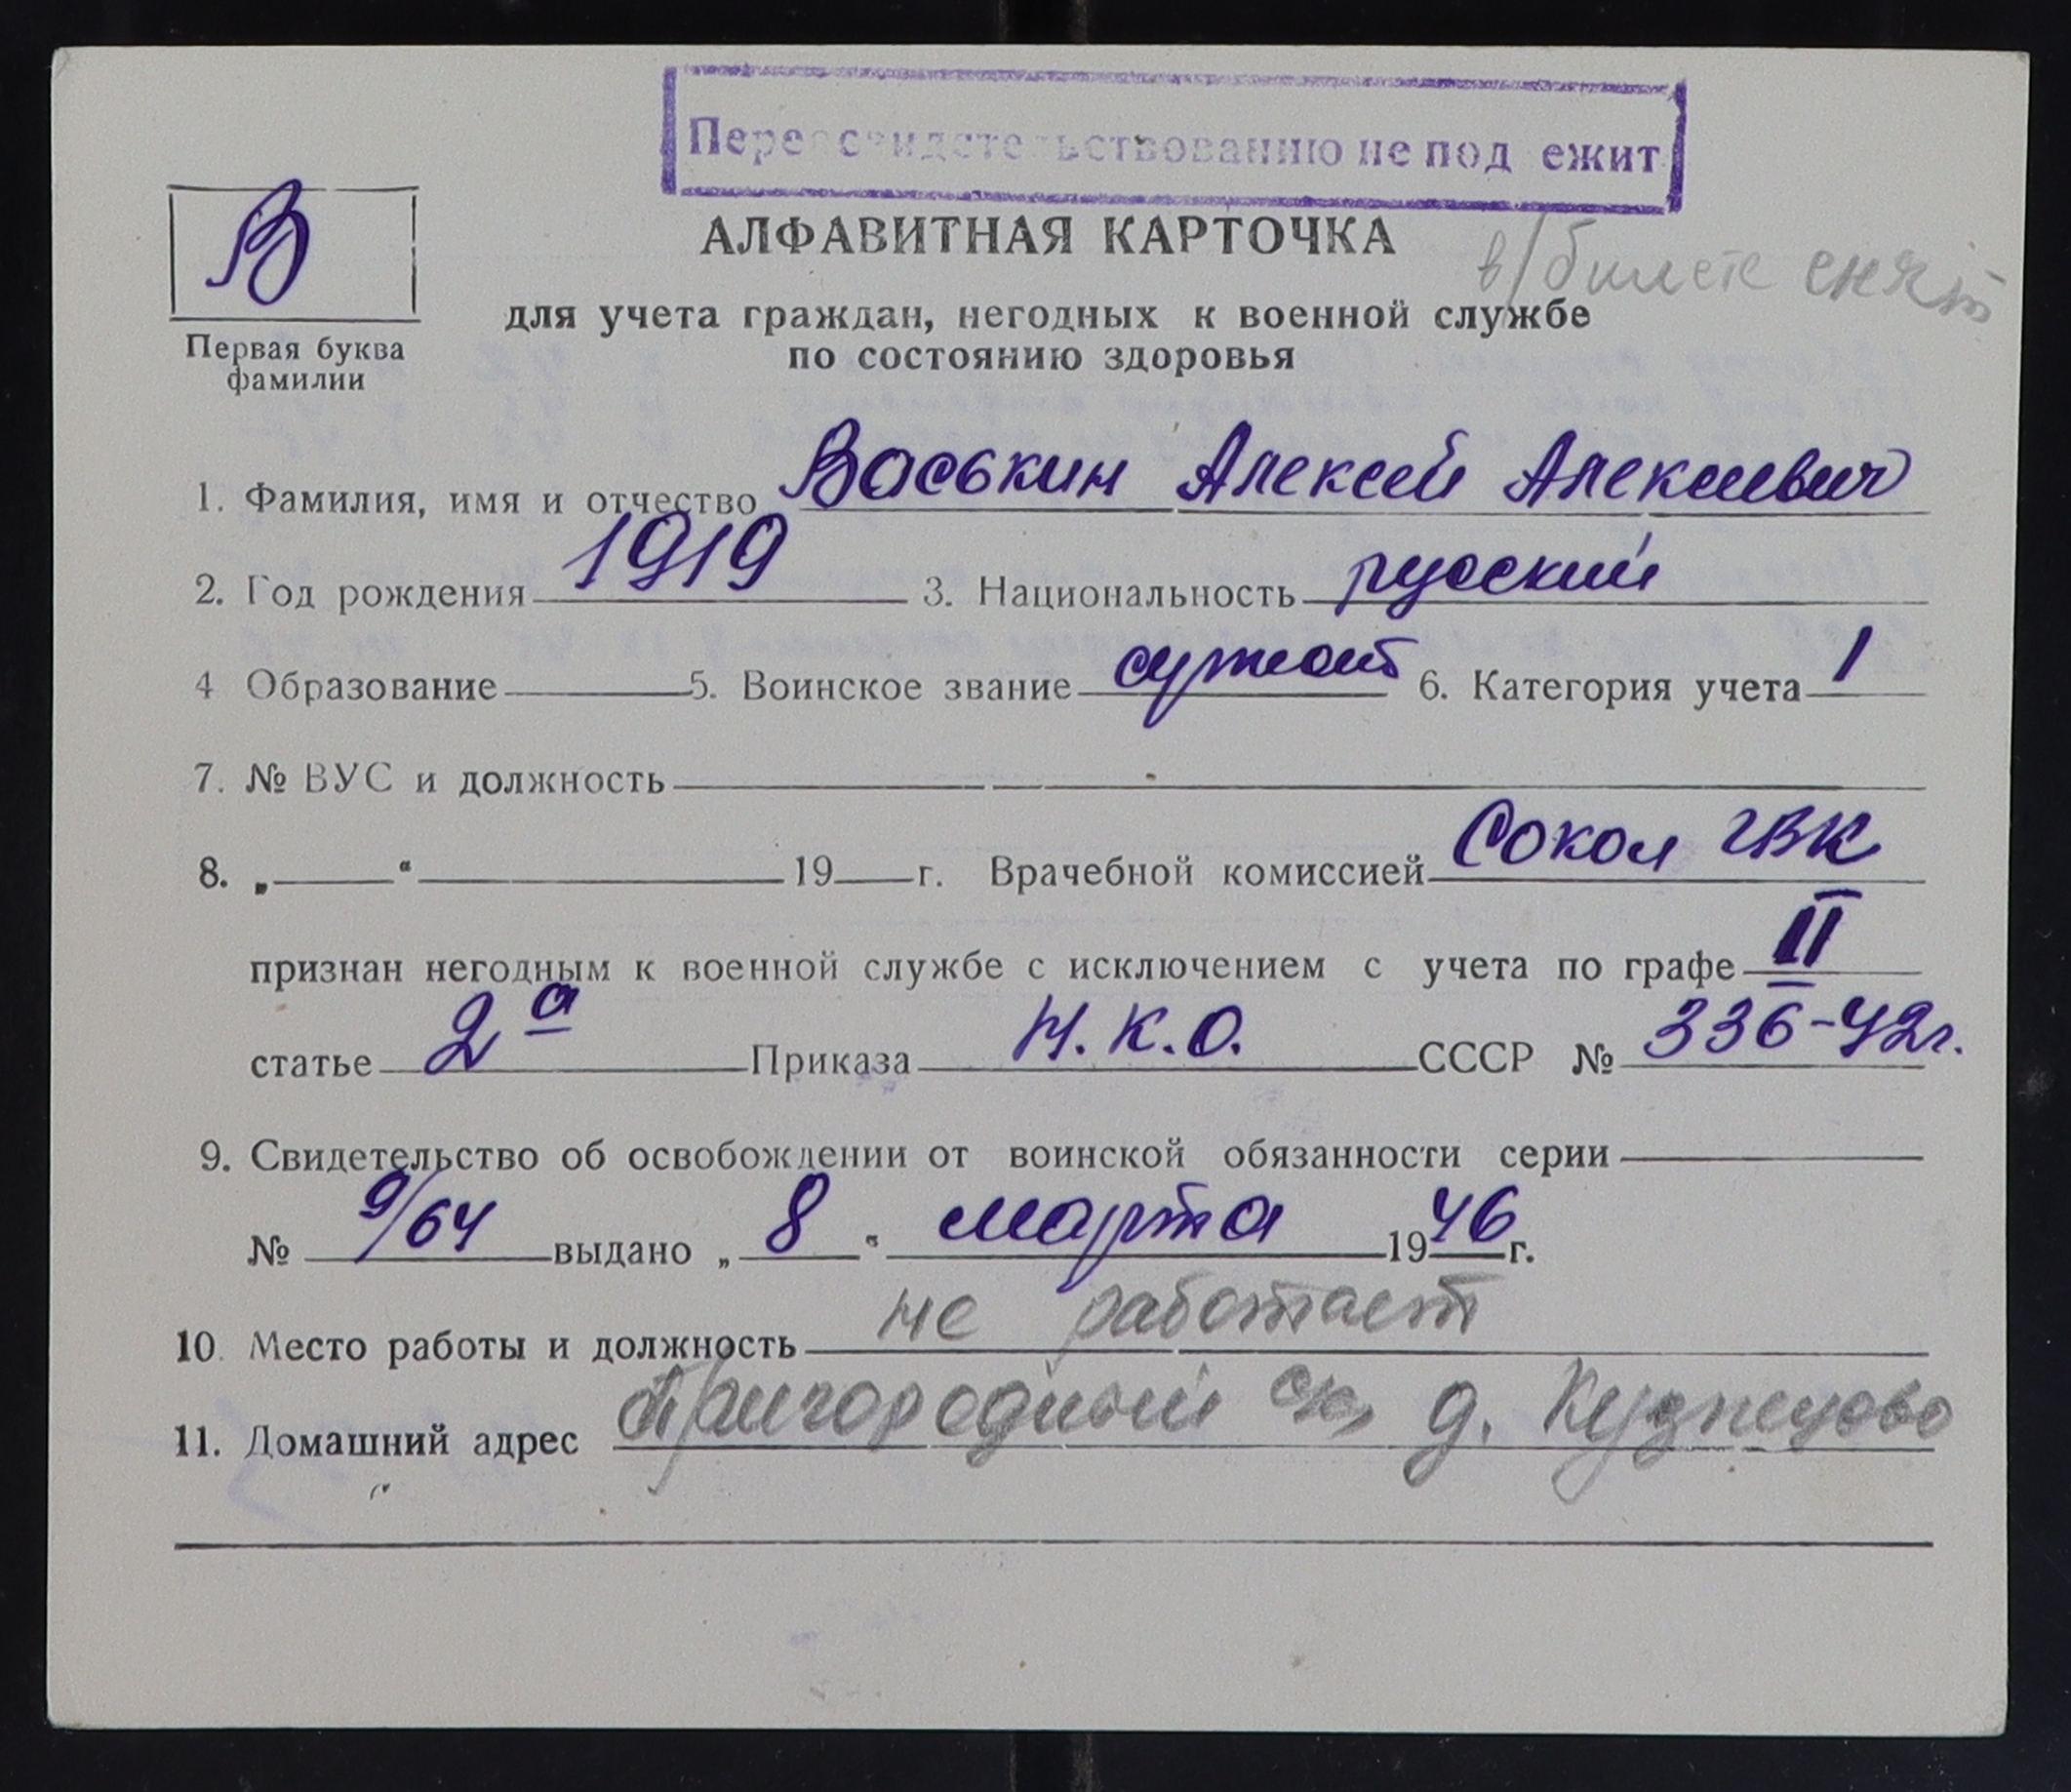 Переосвидетельствованию не подлежит
В
АЛФАВИТНАЯ КАРТОЧКА
в/билете снят
для учета граждан, негодных к военной службе
по состоянию здоровья
Первая буква
фамилии
1. Фамилия, имя и отчество Воськин Алексей Алексеевич
2. Год рождения 1919 3. Национальность русский
4 Образование 5. Воинское звание сержант 6. Категория учета 1
7. № ВУС и должность
8. „ “ 19 г. Врачебной комиссией Сокол ГВК
признан негодным к военной службе с исключением с учета по графе II
статье 2а Приказа Н.К.О. СССР № 336-42г.
9. Свидетельство об освобождении от воинской обязанности серии
№ 9/64 выдано „ 8 “ марта 1946 г.
10. Место работы и должность не работает
11. Домашний адрес Пригородный с/с, д. Кузнецово